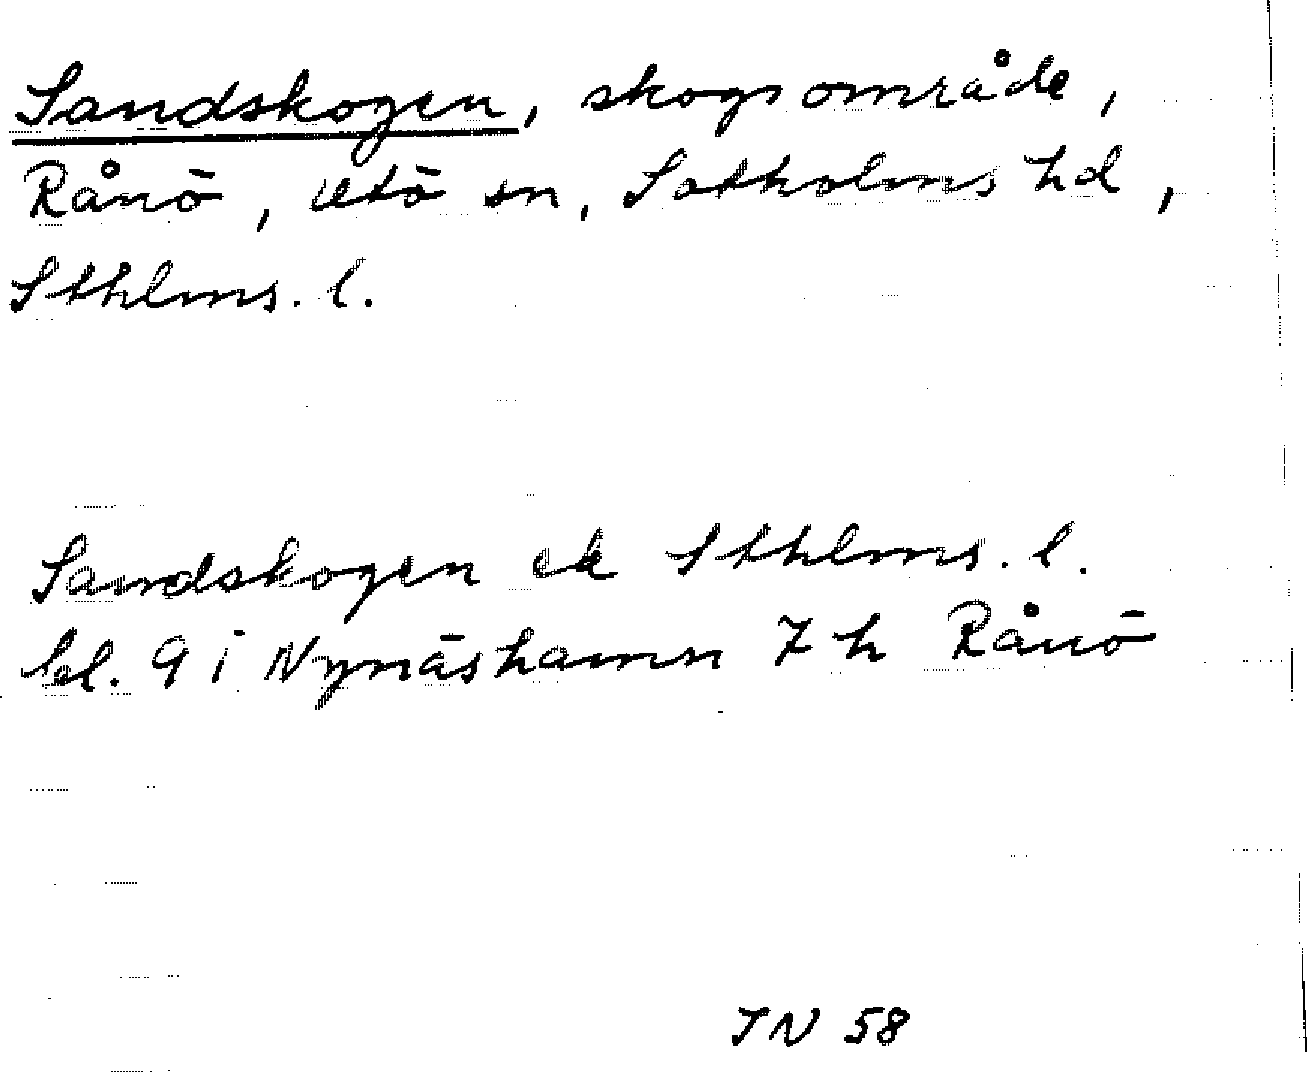 Sandskogen, skogsområde,
Rånö, Utö sn, Sotholms hd,
Sthlms. l.
Sandskogen ek Sthlms. l.
bl. 9 i Nynäshamn 7 h Rånö
IN 58